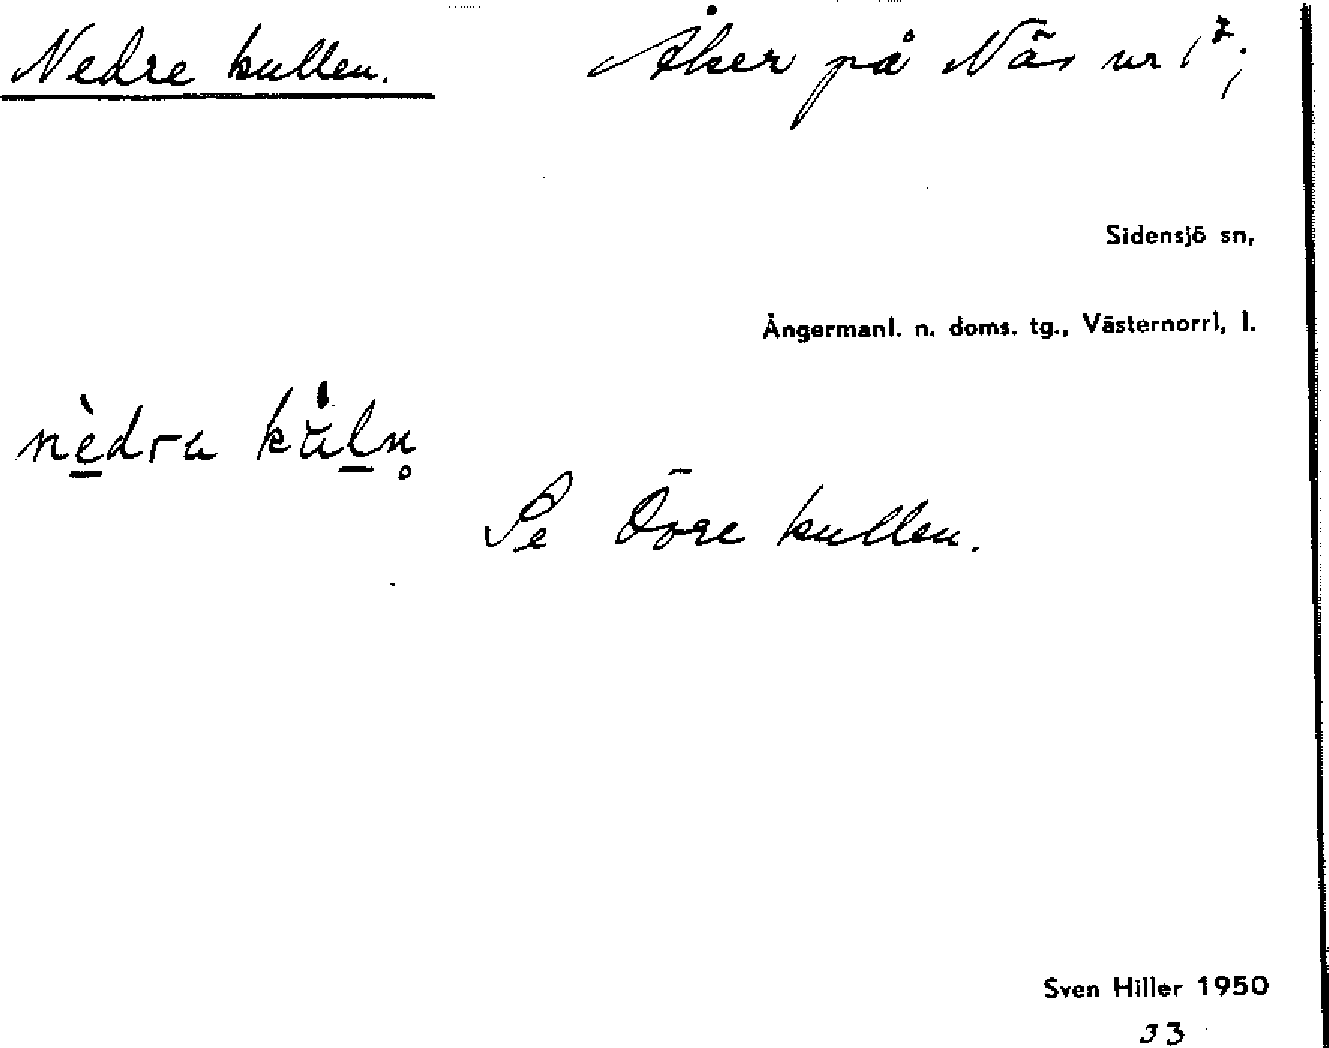 Nedre kullen. Åker på Näs nr 1⁷;
Sidensjö sn,
Ångermanl. n. doms. tg., Västernorrl, l.
nèdra
Se Övre kullen.
Sven Hiller 1950
33